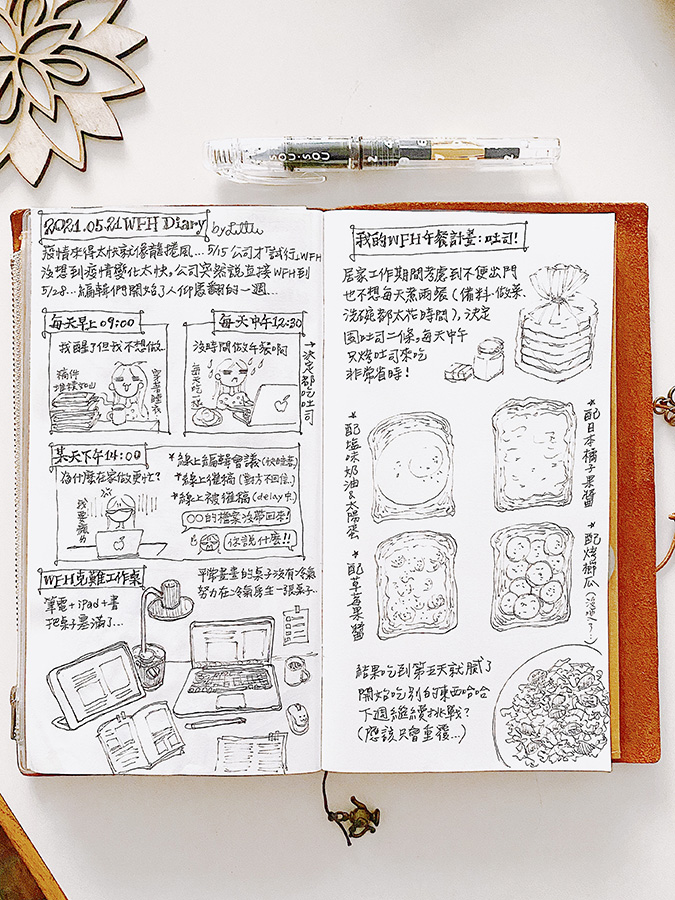 SOU·SOU
2021.05.21 WFH Diary by
疫情來得太快就像龍捲風... 5/15 公司才試行WFH
沒想到疫情變化太快,公司突然說直接 WFH到
5/28...編輯們開始了人仰馬翻的一週...
每天早上 09:00
我醒了但我不想做
稿件
堆積如山
穿著睡衣
每天中午12:30
沒時間做午餐啊
每天吃一樣
→決定都吃吐司
某天下午14:00
為什麼在家做更忙?
我要瘋了
*線上編輯會議(快睡著)
*線上催稿(對方不回信)
*線上被催稿(delay中)
○○的檔案沒帶回來!
你說什麼!!
WFH克難工作桌
筆電+iPad+書
把桌子塞滿了...
平常畫畫的桌子沒有冷氣
努力在冷氣房生一張桌子..
我的WFH午餐計畫:吐司!
居家工作期間考慮到不便出門
也不想每天煮兩餐(備料.做菜.
洗碗都太花時間),決定
囤吐司二條,每天中午
只烤吐司來吃
非常省時!
*配塩味奶油&太陽蛋
*配日本橘子果醬
*配草莓果醬
*配烤櫛瓜
結果吃到第五天就膩了
開始吃別的東西哈哈
下週繼續挑戰?
(應該只會重覆...)